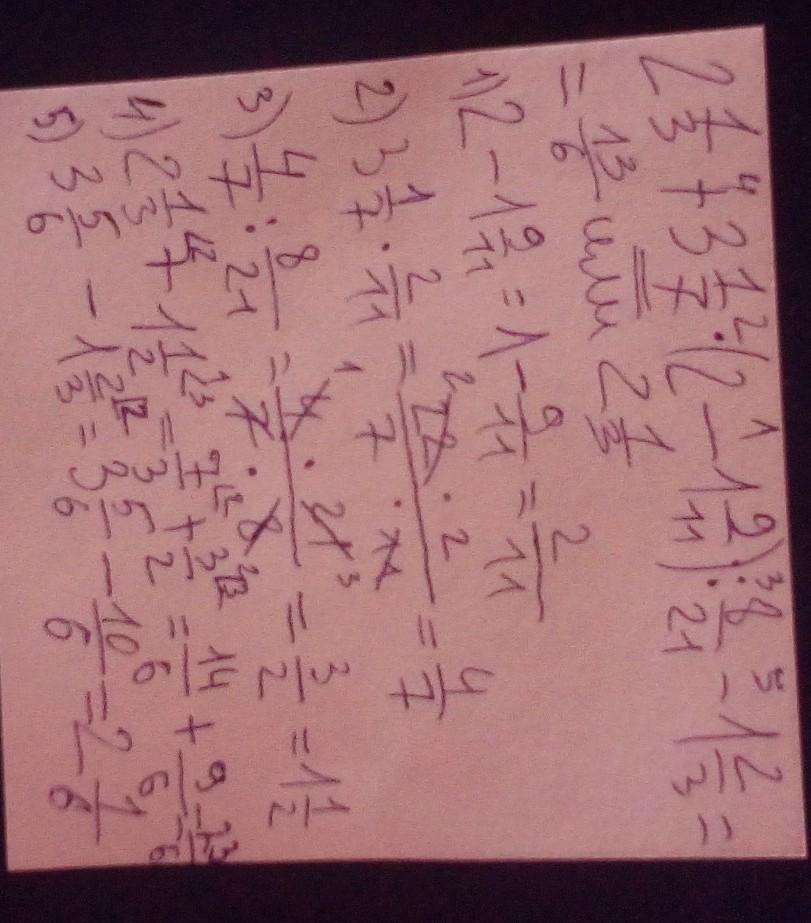 2 1/3 +⁴ 3 1/7 ·² (2 −¹ 1 9/11) :³ 8/21 −⁵ 1 2/3 =
= 13/6 или 2 1/3
1) 2 − 1 9/11 = 1 − 9/11 = 2/11
2) 3 1/7 · 2/11 = (22 · 2)/(7 · 11) = 4/7
3) 4/7 : 8/21 = (4 · 21)/(7 · 8) = 3/2 = 1 1/2
4) 2 1/3 + 1 1/2 = 7/3 + 3/2 = 14/6 + 9/6 = 23/6
5) 3 5/6 − 1 2/3 = 3 5/6 − 10/6 = 2 1/6